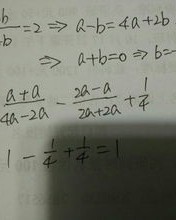 b/+b = 2 ⇒ a-b=4a+2b
⇒ a+b=0 ⇒ b=-
a+a/4a-2a - 2a-a/2a+2a + 1/4
1 - 1/4 + 1/4 = 1